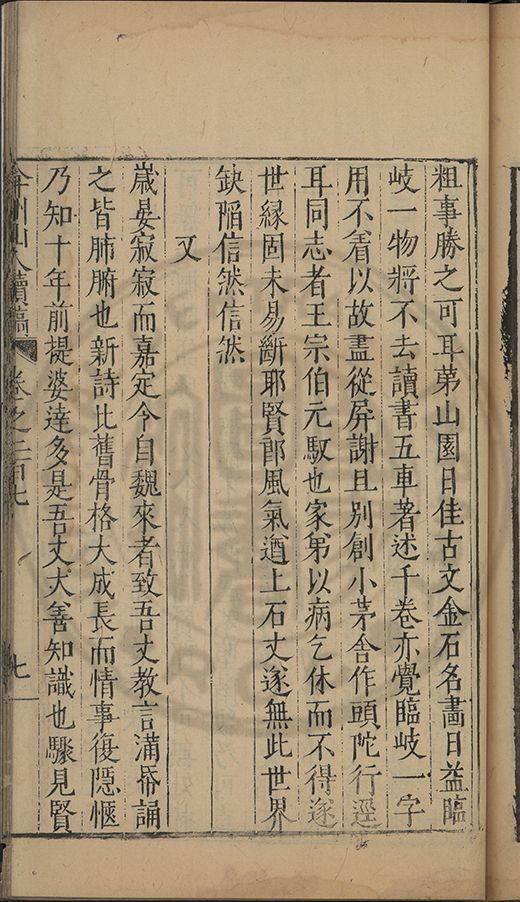 粗事勝之可耳苐山園日佳古文金石名畵日益臨
岐一物將不去讀書五車著述千卷亦覺臨岐一字
用不着以故盡從屏謝且别創小茅舍作頭陀行逕
耳同志者王宗伯元馭也家苐以病乞休而不得遂
世縁固未易斷耶賢郎風氣遒上石丈遂無此世界
缺䧟信然信然
又
嵗晏寂寂而嘉定令自魏來者致吾丈教言滿帋誦
之皆肺腑也新詩比舊骨格大成長而情事復隠愜
乃知十年前提婆達多是吾丈大善知識也驟見賢
弇州山人續稿
卷之二百七
七